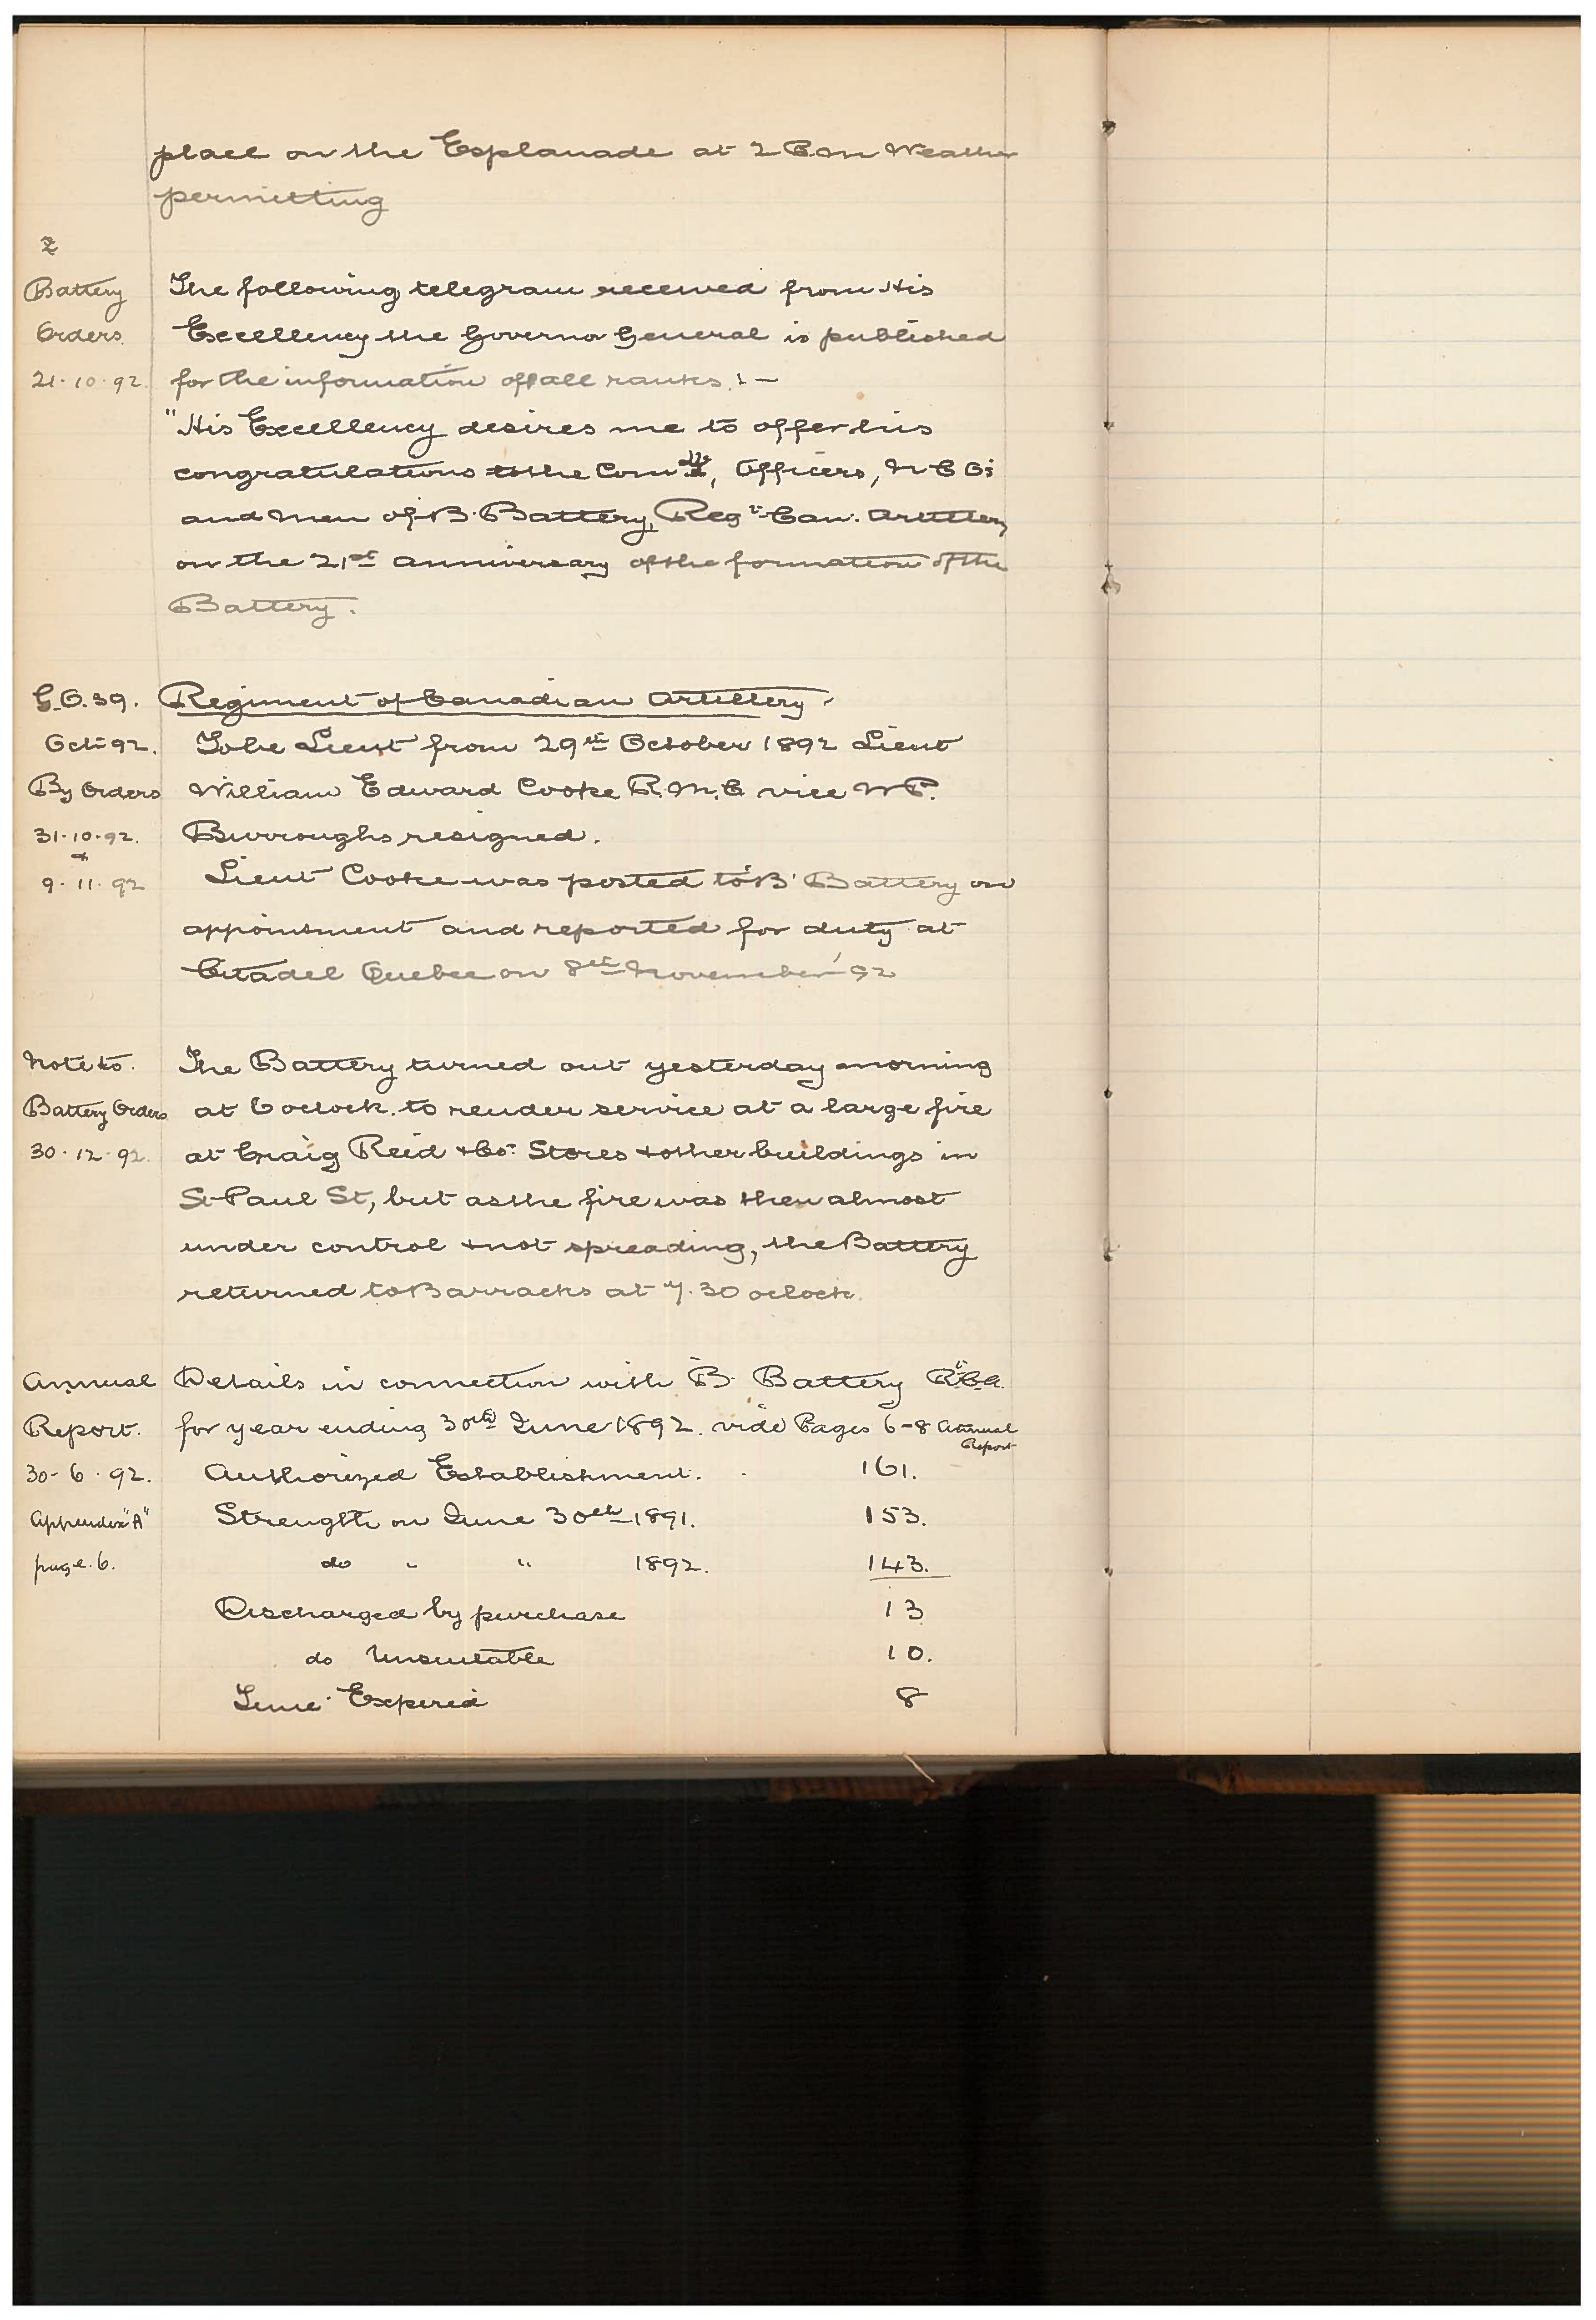 place on the Esplanade at 2 P.M Weather
permitting
2
Battery The following telegram received from His
Orders. Excellency the Governor General is published
21.10.92. for the information of all ranks :—
"His Excellency desires me to offer his
congratulations to the Comdt, Officers, N C Os
and Men of B. Battery, Regt Can. Artillery
on the 21st Anniversary of the formation of the
Battery.
G.O.39. Regiment of Canadian Artillery.
Oct 92. To be Lieut from 29th October 1892 Lieut
By Orders William Edward Cooke R.M.C vice W P.
31.10.92. Burroughs resigned.
&
9.11.92 Lieut Cooke was posted to 'B' Battery on
appointment and reported for duty at
Citadel Quebec on 8th November '92
Note to. The Battery turned out yesterday morning
Battery Orders at 6 oclock to render service at a large fire
30.12.92. at Craig Reid & Co. Stores & other buildings in
St Paul St, but as the fire was then almost
under control & not spreading, the Battery
returned to Barracks at 7.30 oclock.
Annual Details in connection with B. Battery R.C.A.
Report. for year ending 30th June 1892. vide Pages 6-8 Annual Report
30-6.92. Authorized Establishment. . 161.
Appendix "A" Strength on June 30th 1891. 153.
page.6. do " " 1892. 143.
Discharged by purchase 13
do Unsuitable 10.
Time Expired 8